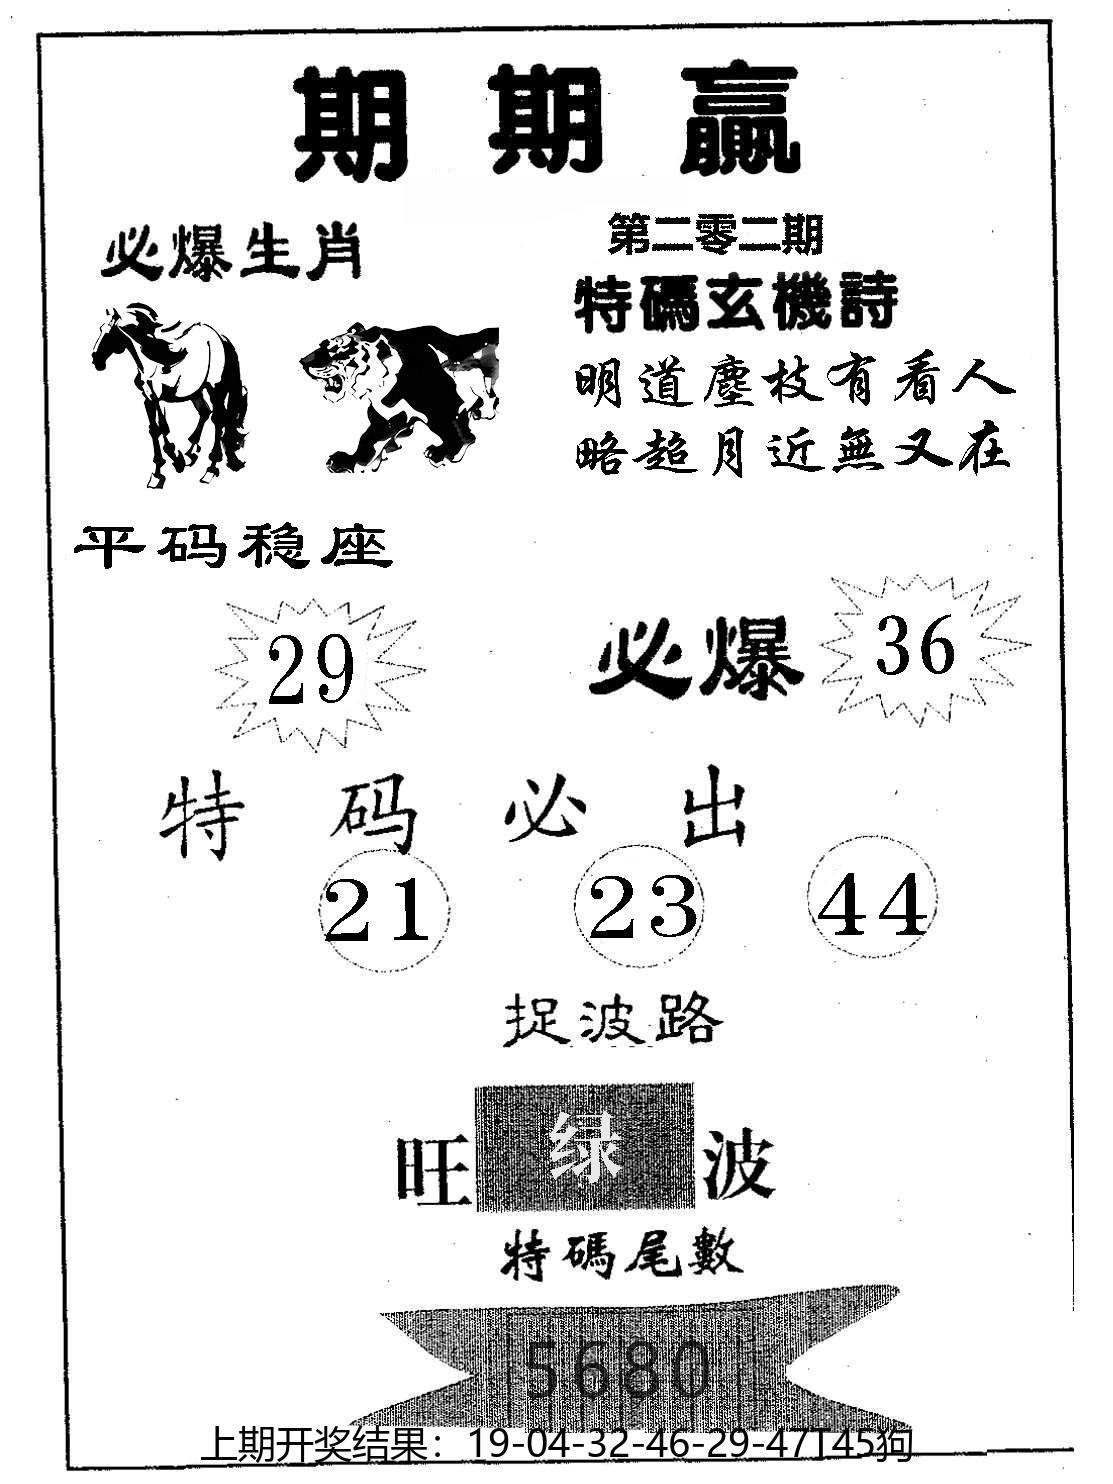 期期赢
必爆生肖
第二零二期
特碼玄機詩
明道塵枝有看人
略超月近無又在
平码稳座
29
必爆 36
特码必出
21 23 44
捉波路
旺 绿 波
特碼尾數
5680
上期开奖结果：19-04-32-46-29-47T45狗